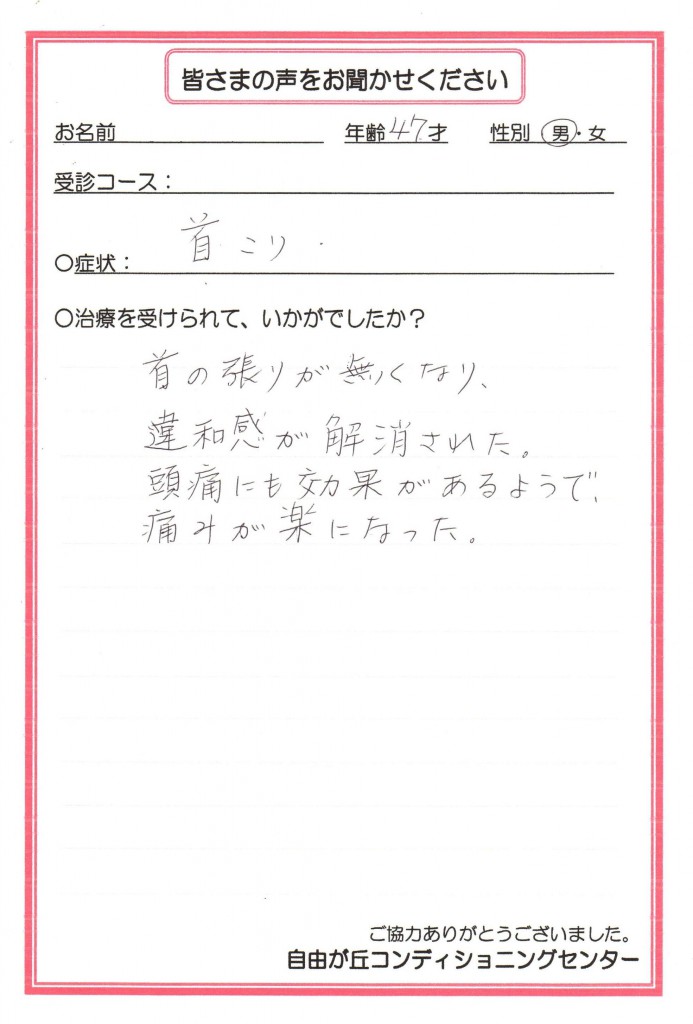 皆さまの声をお聞かせください
お名前 年齢 47才 性別 男・女
受診コース：
〇症状： 首こり
〇治療を受けられて、いかがでしたか？
首の張りが無くなり、
違和感が解消された。
頭痛にも効果があるようで、
痛みが楽になった。
ご協力ありがとうございました。
自由が丘コンディショニングセンター